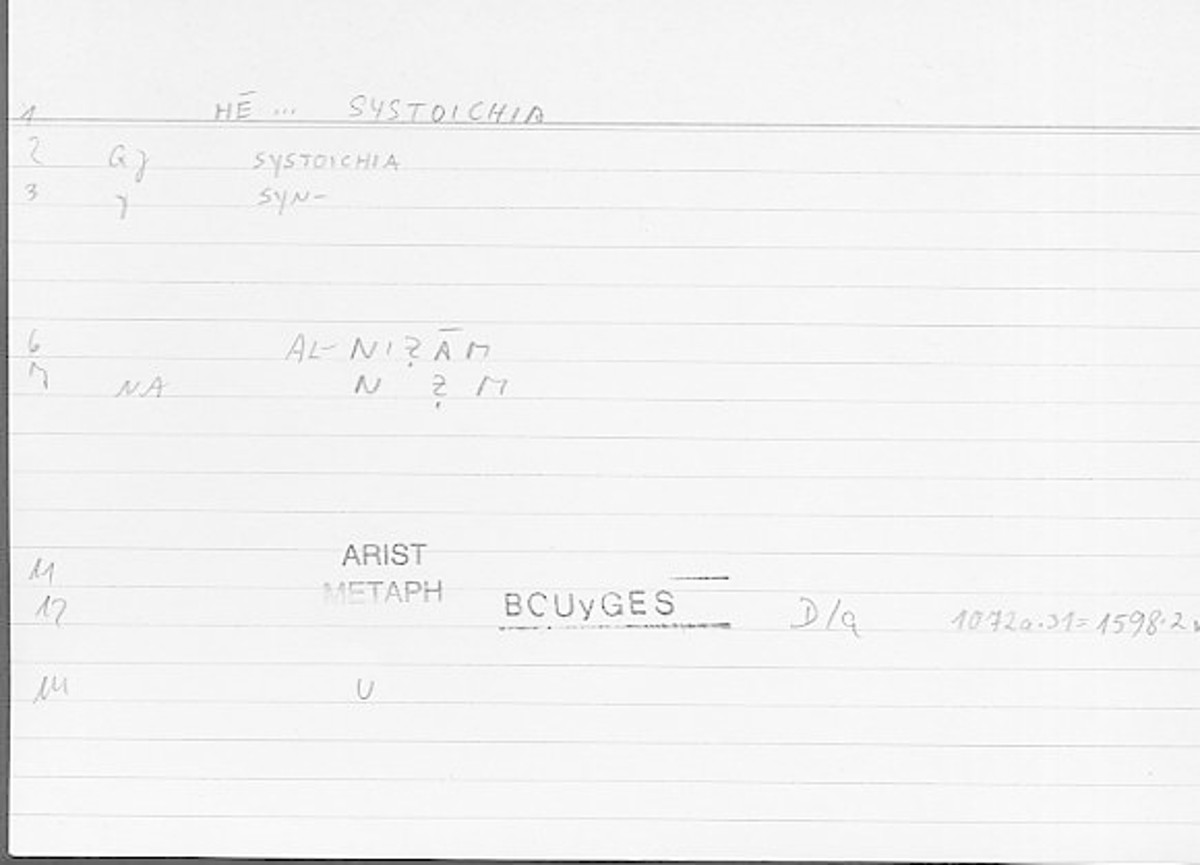 1 HĒ ... SYSTOICHIA
2 SYSTOICHIA
3 SYN-
6 AL-NIẒĀM
7 NA N Ẓ M
11 ARIST
12 METAPH BOUyGES D/q 1072a.31=1598.2
14 U